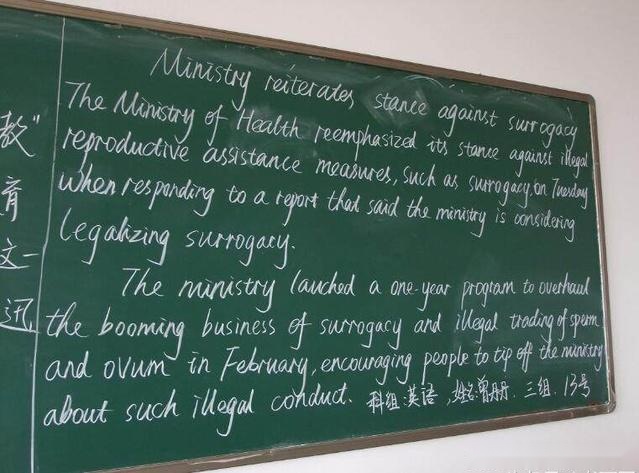 Ministry reiterates stance against surrogacy
The Ministry of Health reemphasized its stance against illegal
reproductive assistance measures, such as surrogacy, on Tuesday
when responding to a report that said the ministry is considering
legalizing surrogacy.
The ministry lauched a one-year program to overhaul
the booming business of surrogacy and illegal trading of sperm
and ovum in February, encouraging people to tip off the ministry
about such illegal conduct. 科组:英语,姓名:曾丹丹. 三组. 13号
教"
育
文一
迅